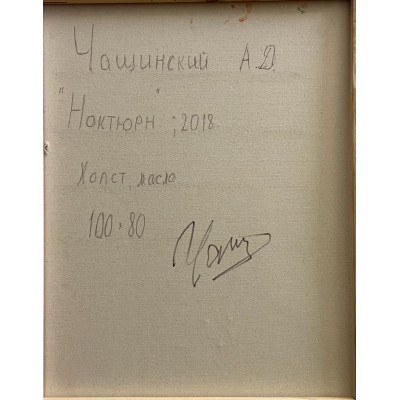 Чащинский А.Д.
"Ноктюрн"; 2018
Холст, масло
100×80